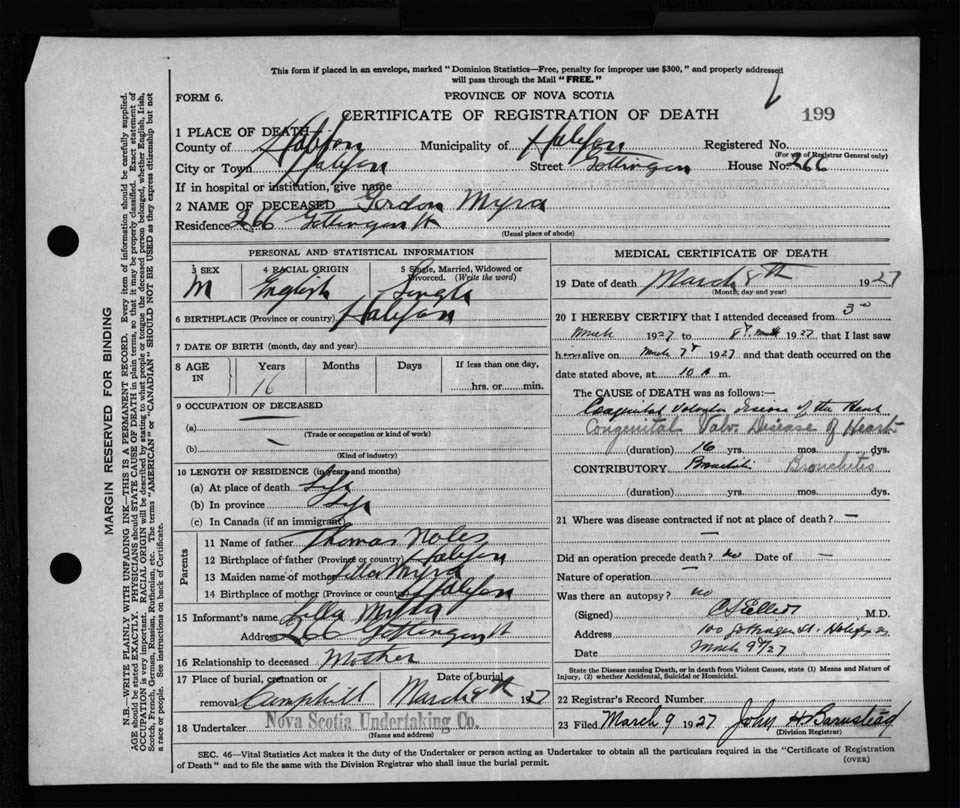 This form if placed in an envelope, marked "Dominion Statistics—Free, penalty for improper use $300," and properly addressed
will pass through the Mail "FREE."
FORM 6.
PROVINCE OF NOVA SCOTIA
CERTIFICATE OF REGISTRATION OF DEATH
199
1 PLACE OF DEATH
County of Halifax Municipality of Halifax Registered No.
(For use of Registrar General only)
City or Town Halifax Street Gottingen House No. 266
If in hospital or institution, give name
2 NAME OF DECEASED Gordon Myra
Residence 266 Gottingen St
(Usual place of abode)
PERSONAL AND STATISTICAL INFORMATION
3 SEX 4 RACIAL ORIGIN 5 Single, Married, Widowed or Divorced. (Write the word)
M English Single
6 BIRTHPLACE (Province or country) Halifax
7 DATE OF BIRTH (month, day and year)
8 AGE IN Years Months Days If less than one day,
16 hrs. or min.
9 OCCUPATION OF DECEASED
(a)
(Trade or occupation or kind of work)
(b) —
(Kind of industry)
10 LENGTH OF RESIDENCE (in years and months)
(a) At place of death Life
(b) In province Life
(c) In Canada (if an immigrant)
Parents
11 Name of father Thomas Noles
12 Birthplace of father (Province or country) Halifax
13 Maiden name of mother Lilla Myra
14 Birthplace of mother (Province or country) Halifax
15 Informant's name Lilla Myra
Address 266 Gottingen St
16 Relationship to deceased Mother
17 Place of burial, cremation or removal Camphill Date of burial March 8th 1927
18 Undertaker Nova Scotia Undertaking Co.
(Name and address)
MEDICAL CERTIFICATE OF DEATH
19 Date of death March 8th 1927
(Month, day and year)
20 I HEREBY CERTIFY that I attended deceased from 3rd
March 1927 to 8th March 1927, that I last saw
him alive on March 7th 1927 and that death occurred on the
date stated above, at 10 a m.
The CAUSE of DEATH was as follows:—
Congenital Valvular disease of the Heart
Congenital Valv. Disease of Heart
(duration) 16 yrs. mos. dys.
CONTRIBUTORY Bronchitis Bronchitis
(duration) yrs. mos. dys.
21 Where was disease contracted if not at place of death? —
Did an operation precede death? no Date of —
Nature of operation —
Was there an autopsy? no
(Signed) M.D.
Address 100 Gottingen St. Halifax
Date March 9th/27
State the Disease causing Death, or in death from Violent Causes, state (1) Means and Nature of
Injury, (2) whether Accidental, Suicidal or Homicidal.
22 Registrar's Record Number
23 Filed March 9 1927 John H Barnstead
(Division Registrar)
SEC. 46—Vital Statistics Act makes it the duty of the Undertaker or person acting as Undertaker to obtain all the particulars required in the "Certificate of Registration
of Death" and to file the same with the Division Registrar who shall issue the burial permit.
(OVER)
MARGIN RESERVED FOR BINDING
N.B.—WRITE PLAINLY WITH UNFADING INK—THIS IS A PERMANENT RECORD. Every item of information should be carefully supplied.
AGE should be stated EXACTLY. PHYSICIANS should STATE CAUSE OF DEATH in plain terms, so that it may be properly classified. Exact statement of
OCCUPATION is very important. RACIAL ORIGIN will be described by stating to what people or tongue the deceased person belonged, whether English, Irish,
Scotch, French, German, Russian, Ruthenian, etc. The terms "AMERICAN" or "CANADIAN" SHOULD NOT BE USED as they express citizenship but not
a race or people. See instructions on back of Certificate.